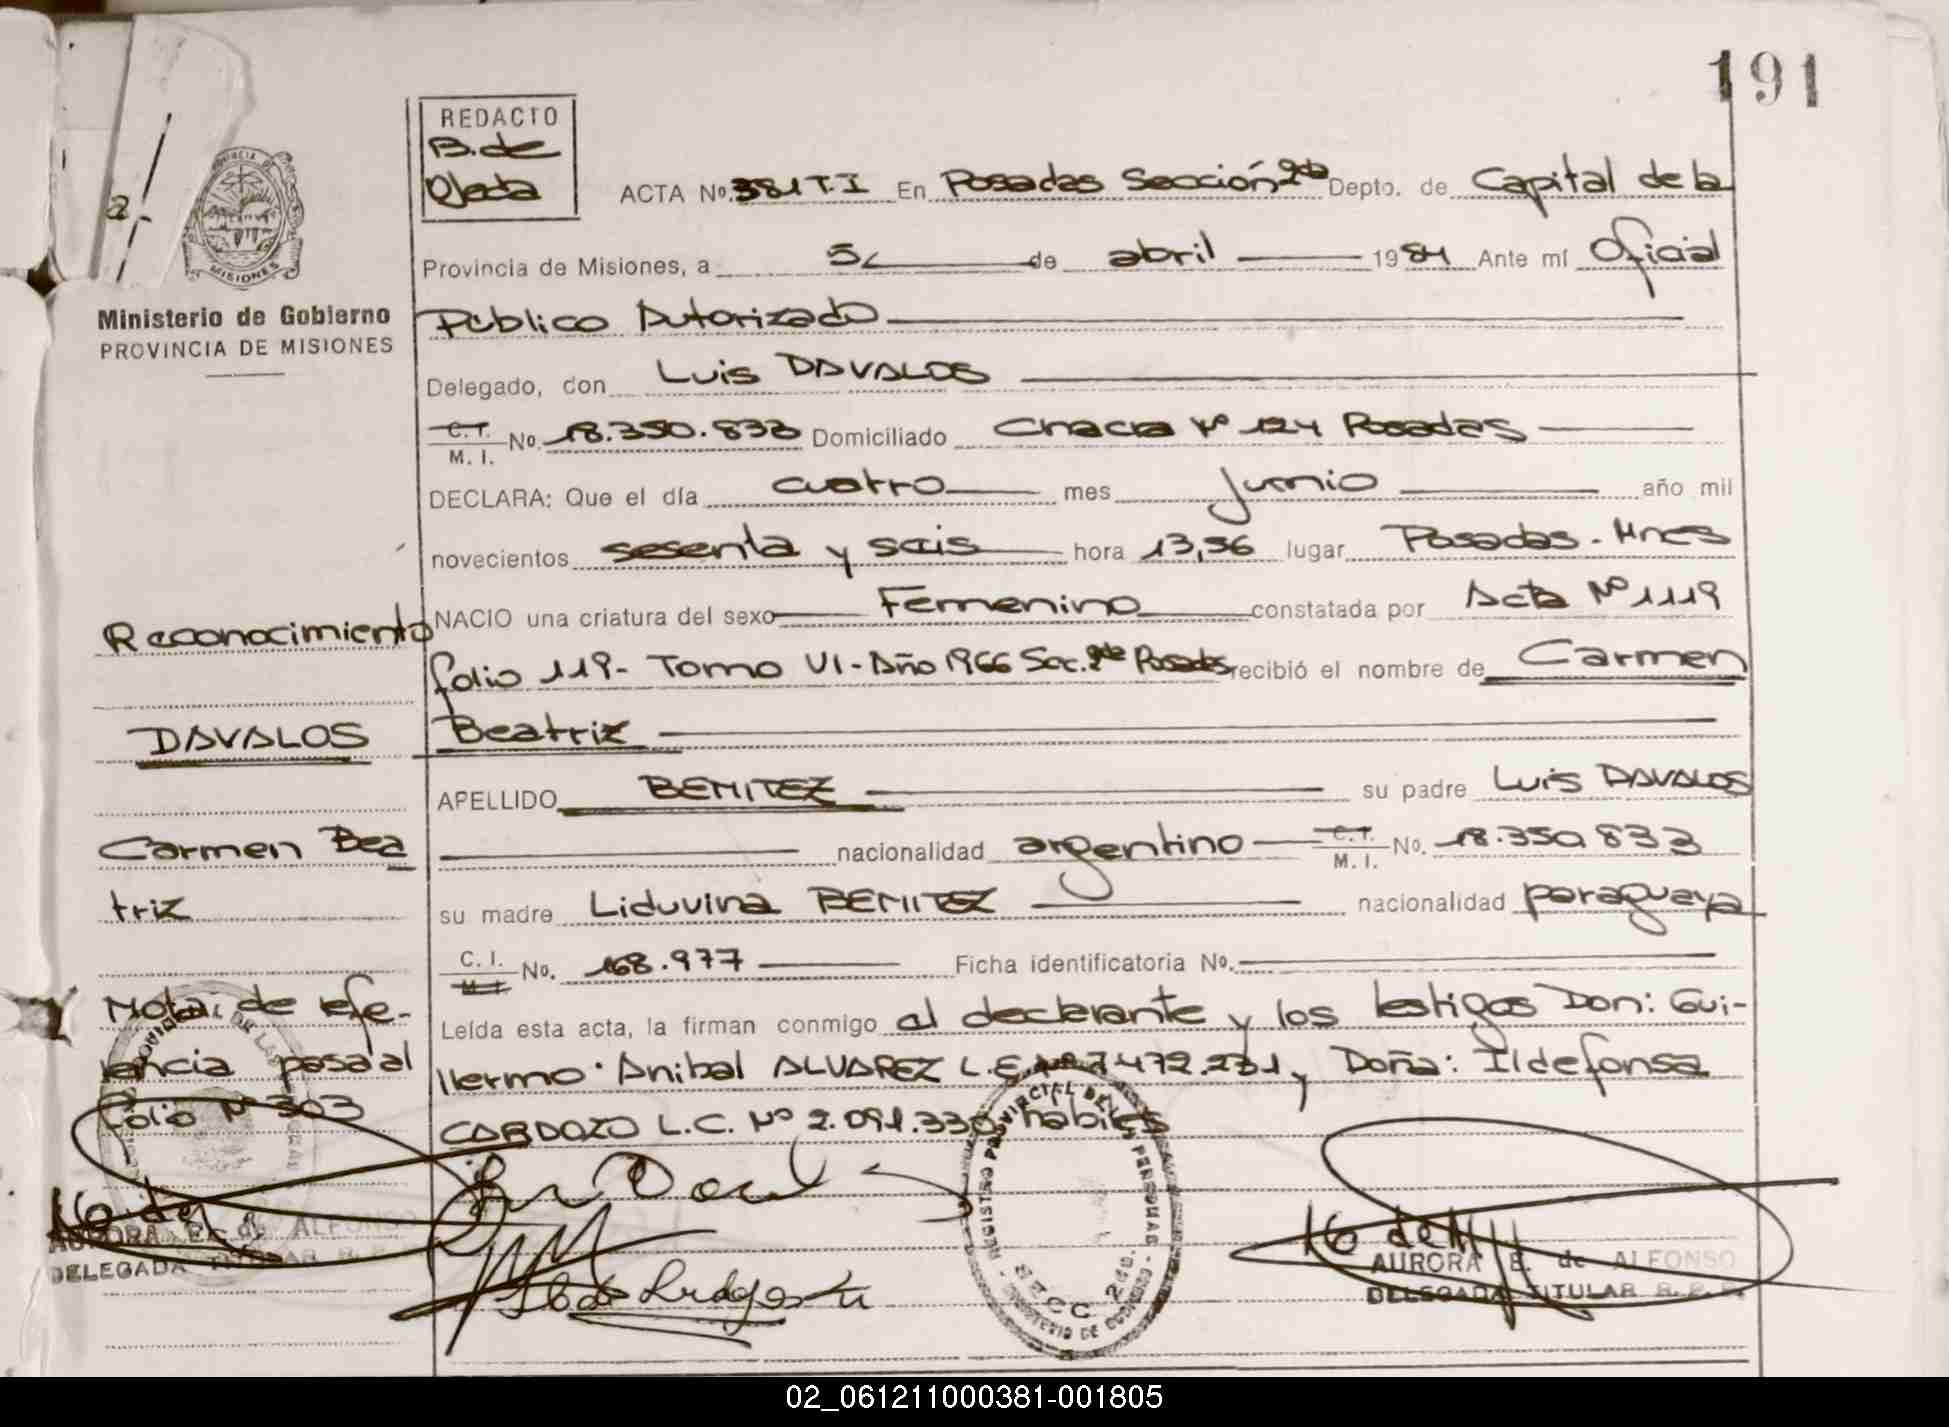 191
REDACTO
B. de
Ojeda
ACTA No. 381 T. I En Posadas Sección 2da Depto. de Capital de la
Provincia de Misiones, a 5 de abril 1984 Ante mí Oficial
Público Autorizado
Delegado, don Luis DAVALOS
C. I. M. I. No. 18.350.833 Domiciliado Chacra Nº 124 Posadas
DECLARA: Que el día cuatro mes junio año mil
novecientos sesenta y seis hora 13,56 lugar Posadas - Mnes
NACIO una criatura del sexo Femenino constatada por Acta Nº 1119
folio 119 - Tomo VI - Año 1966 Sec. 2da Posadas recibió el nombre de Carmen
Beatriz
APELLIDO BENITEZ su padre Luis DAVALOS
nacionalidad argentino C. I. M. I. No. 18.350.833
su madre Liduvina BENITEZ nacionalidad paraguaya
C. I. M. I. No. 168.977 Ficha identificatoria No.
Leída esta acta, la firman conmigo el declarante y los testigos Don: Gui-
llermo Anibal ALVAREZ L.E. Nº 7.472.231, y Doña: Ildefonsa
CARDOZO L.C. Nº 2.091.330, habiles
AURORA E. de ALFONSO
DELEGADA TITULAR R. P. P.
REGISTRO PROVINCIAL DE LAS PERSONAS - MINISTERIO DE GOBIERNO -
SECC. 2da.
PROVINCIA DE
MISIONES
Ministerio de Gobierno
PROVINCIA DE MISIONES
Reconocimiento
DAVALOS
Carmen Bea
triz
Nota: de refe-
rencia pasa al
folio Nº 303
AURORA E. de ALFONSO
DELEGADA TITULAR R. P.
02_061211000381-001805